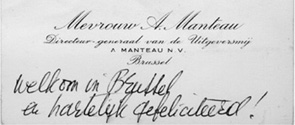 Mevrouw A. Manteau
Directeur-generaal van de Uitgeversmij
A. MANTEAU N.V.
Brussel
welkom in Brussel
en hartelijk gefeliciteerd!